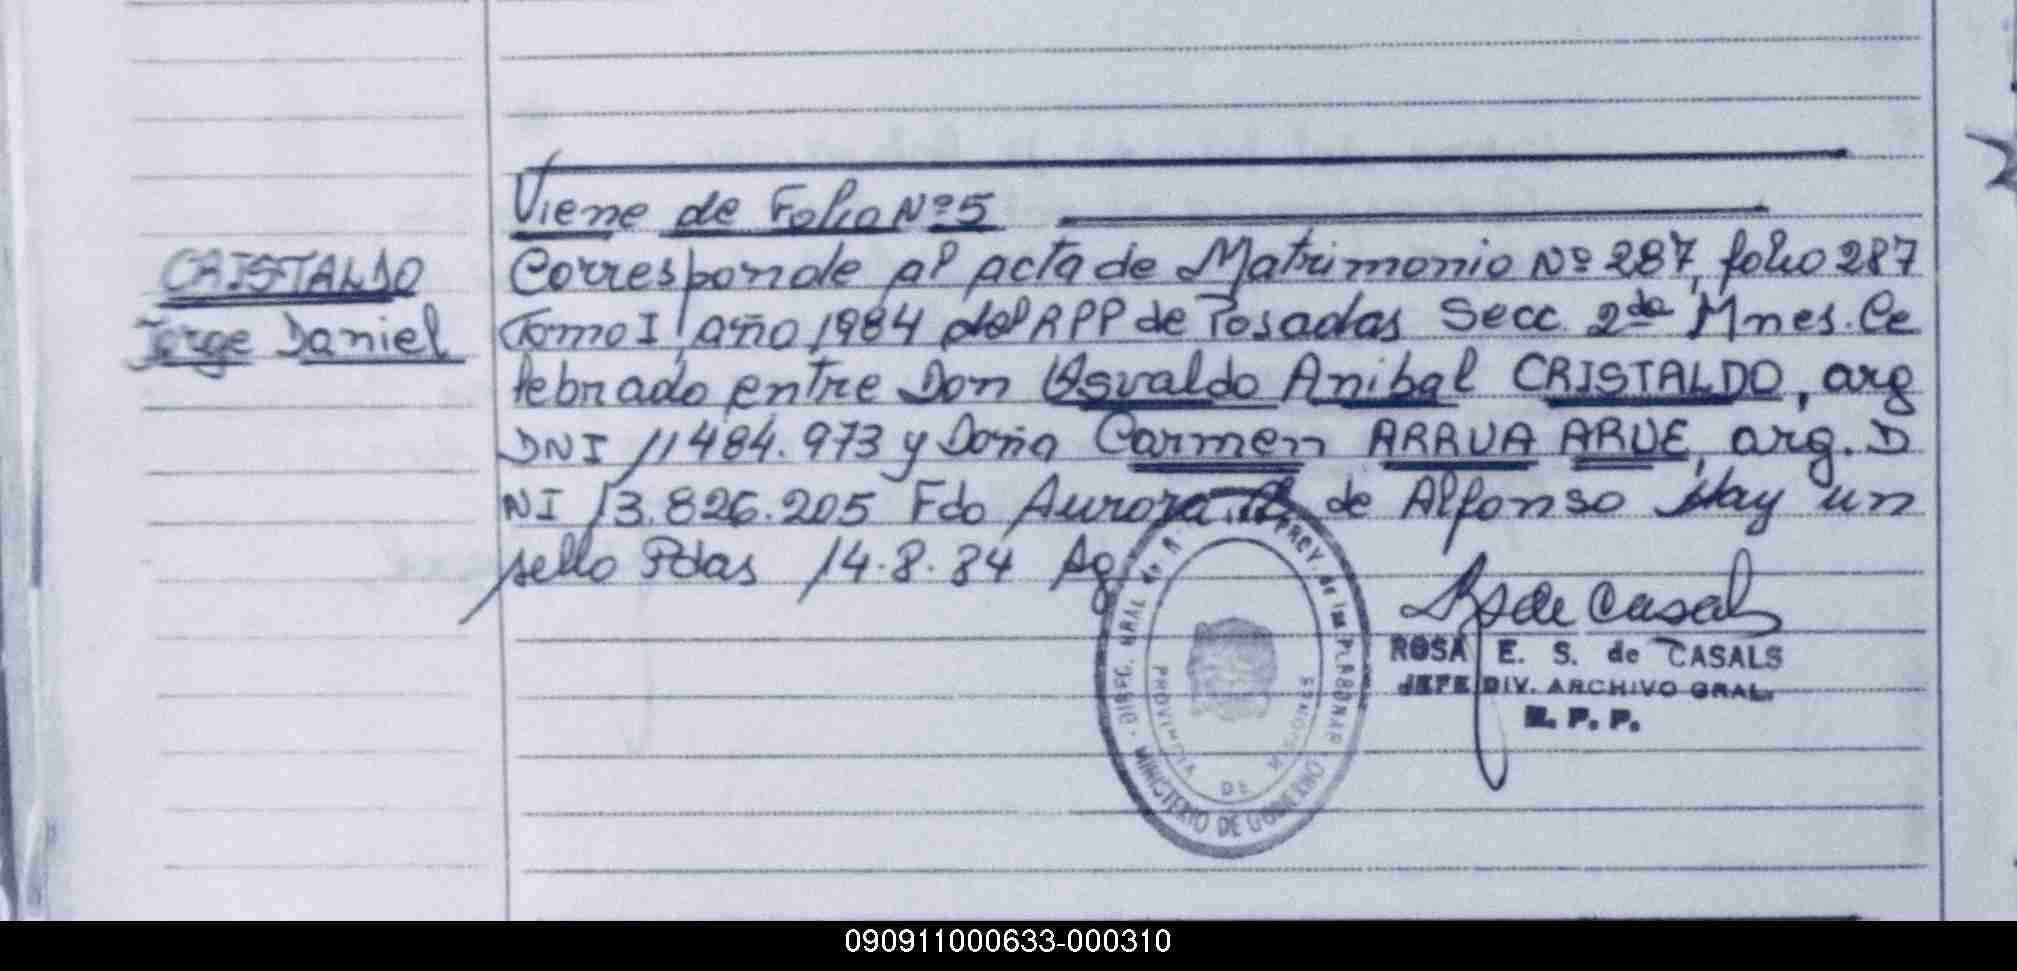 Viene de Folio Nº 5
CRISTALDO
Jorge Daniel
Corresponde al acta de Matrimonio Nº 287, folio 287
Tomo I, año 1984 del RPP de Posadas Secc. 2da Mnes. Ce
lebrado entre Don Osvaldo Anibal CRISTALDO, arg
DNI 11484.973 y Doña Carmen ARRUA ARUE, arg. D
NI 13.826.205 Fdo Aurora de Alfonso Hay un
sello Pdas 14.8.84 Ag
DIREC. GRAL de las PERSONAS
MINISTERIO DE GOBIERNO
PROVINCIA DE MISIONES
de Casals
ROSA E. S. de CASALS
JEFE DIV. ARCHIVO GRAL.
R. P. P.
090911000633-000310